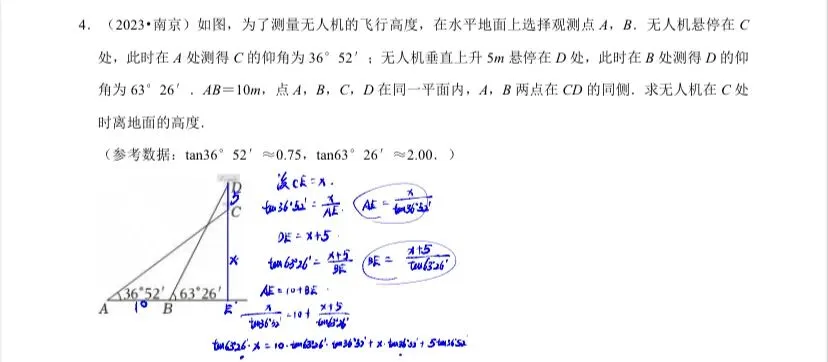 4.（2023•南京）如图，为了测量无人机的飞行高度，在水平地面上选择观测点 A，B．无人机悬停在 C
处，此时在 A 处测得 C 的仰角为 36° 52′；无人机垂直上升 5m 悬停在 D 处，此时在 B 处测得 D 的仰
角为 63° 26′．AB＝10m，点 A，B，C，D 在同一平面内，A，B 两点在 CD 的同侧．求无人机在 C 处
时离地面的高度．
（参考数据：tan36° 52′ ≈0.75，tan63° 26′ ≈2.00．）
D
5
C
x
36°52′ 63°26′
A 10 B E
设CE=x.
tan36°52′=x/AE. AE=x/tan36°52′
DE=x+5.
tan63°26′=x+5/BE BE=x+5/tan63°26′
AE=10+BE.
x/tan36°52′=10+x+5/tan63°26′
tan63°26′·x=10·tan63°26′·tan36°52′+x·tan36°52′+5tan36°52′